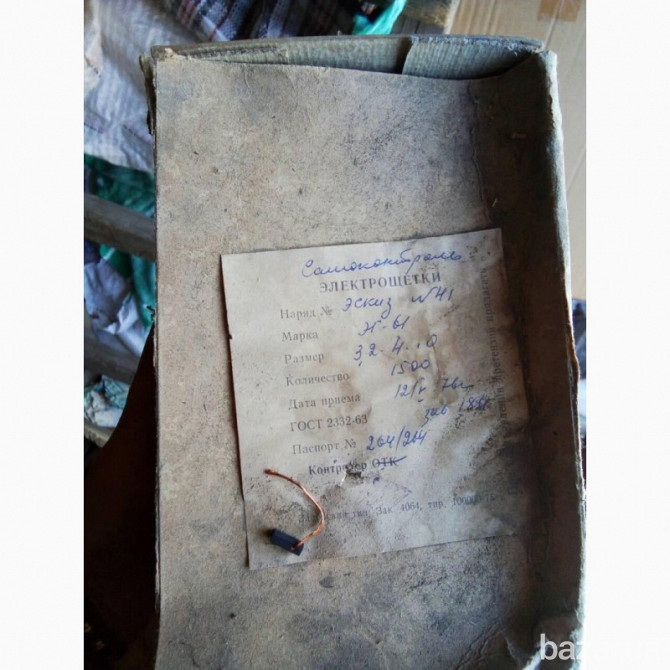 Самоконтроль
ЭЛЕКТРОЩЕТКИ
Наряд № эскиз №41
Марка
Размер 3,2-4-10
Количество 1500
Дата приема
ГОСТ 2332-63
Паспорт № 264/264
Контролер ОТК
тип. Зак. 4064, тир. 100000
baz